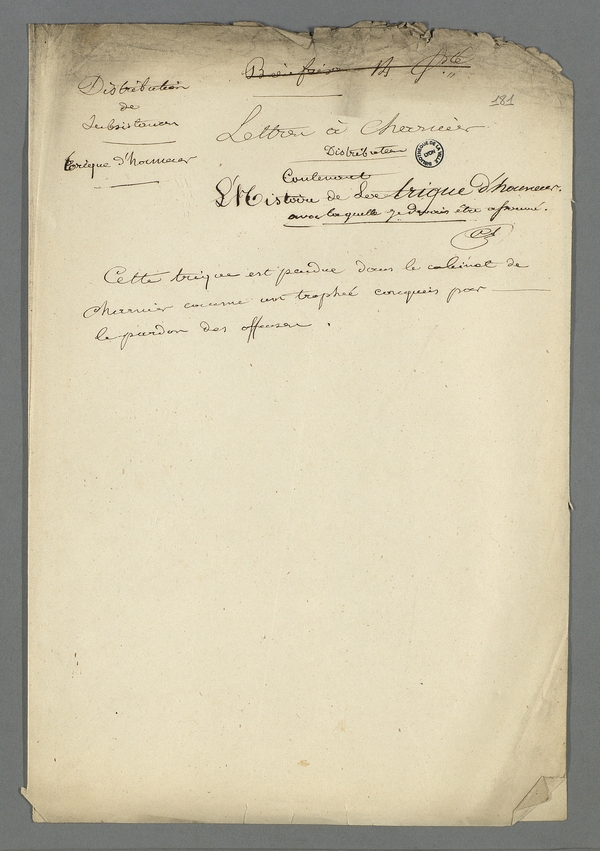 Distribution
de
Subsistances
trique d'honneur
14
181
Lettre à Charnier
Distribution
Contenant
L'Histoire de La trique d'honneur.
avec laquelle je devais être assommé.
Cette trique est pendue dans le cabinet de
Charnier comme un trophée conquis par
le pardon des offenses.